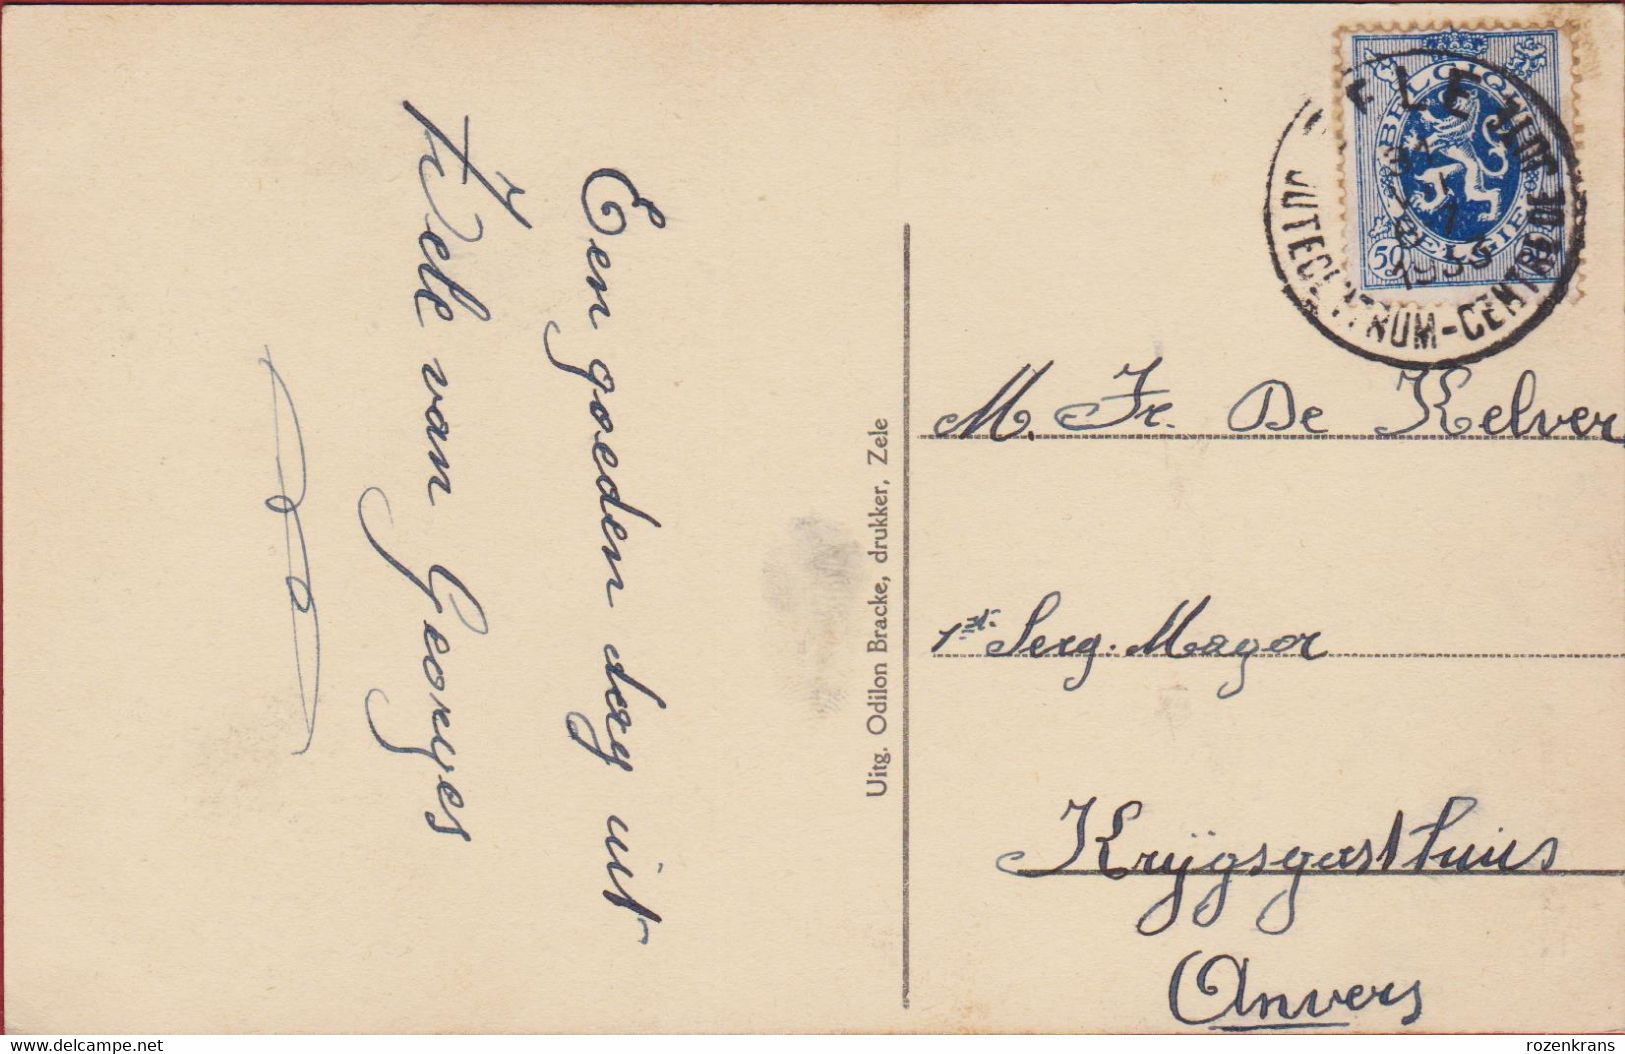 Een goeden dag uit
Zele van Georges
Uitg. Odilon Bracke, drukker, Zele
BELGIQUE
BELGIE
50
ZELE
1933
JUTECENTRUM-CENTRE DE JUTE
M. Fr. De Kelver
1st Serg. Mayor
Krijgsgasthuis
Anvers
delcampe.net
rozenkrans